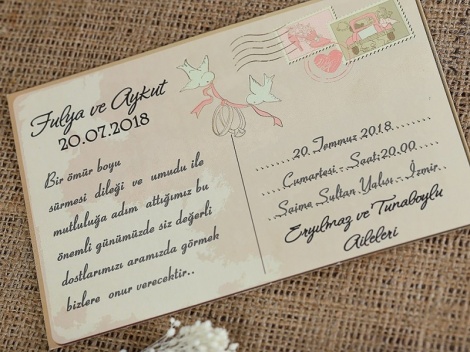 Fulya ve Aykut
20.07.2018
Bir ömür boyu
sürmesi dileği ve umudu ile
mutluluğa adım attığımız bu
önemli günümüzde siz değerli
dostlarımızı aramızda görmek
bizlere onur verecektir..
20 Temmuz 2018
Cumartesi - Saat:20.00
Saima Sultan Yalısı - İzmir
Eryılmaz ve Tunaboylu
Aileleri